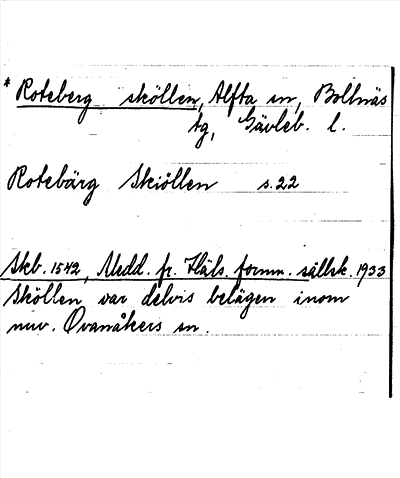 * Roteberg sköllen, Alfta sn, Bollnäs
tg, Gävleb. l.
Rotebärg Skiöllen s. 22
Skb. 1542, Medd. fr. Häls. fornm. sällsk. 1933
Sköllen var delvis belägen inom
nuv. Ovanåkers sn.